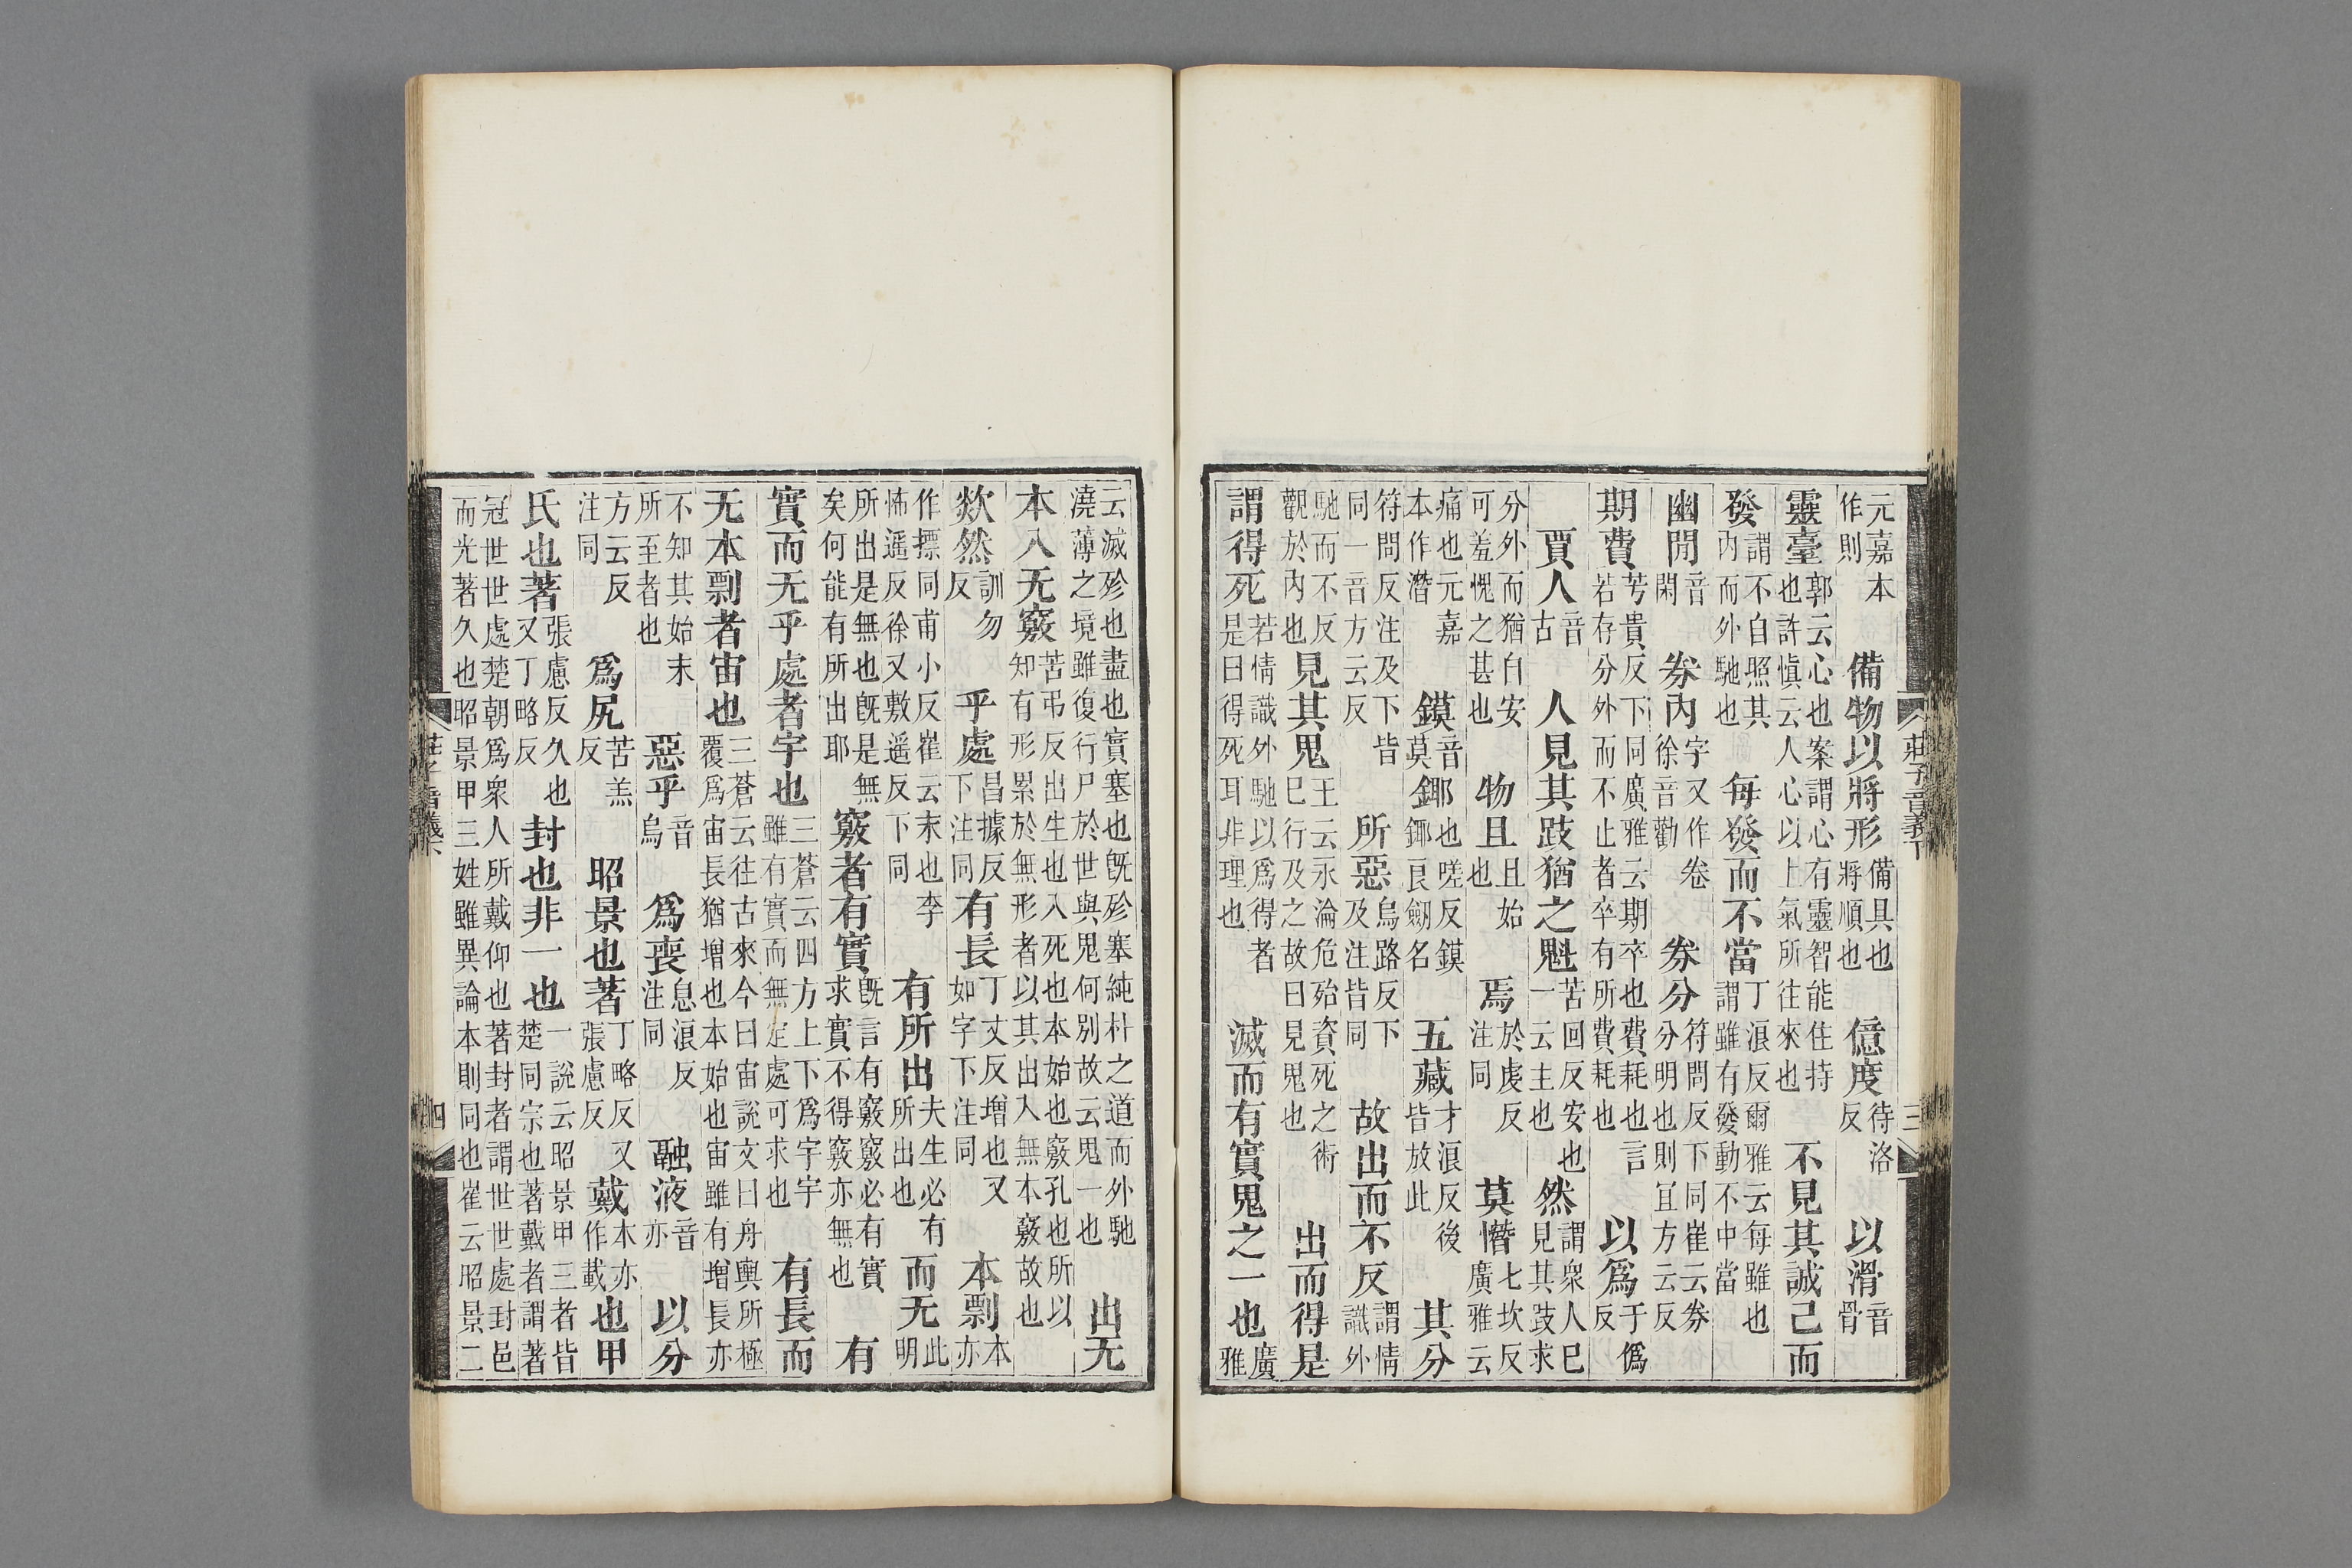 元嘉本作則　備物以將形備具也將順也　億度待洛反　以滑音骨
靈臺郭云心也案謂心有靈智能住持也許慎云人心以上氣所往來也　不見其誠己而
發謂不自照其內而外馳也　每發而不當丁浪反爾雅云每雖也謂雖有發動不中當
幽閒音閑　券內字又作卷徐音勸　券分符問反下同崔云券分明也則宜方云反
期費芳貴反下同廣雅云期卒也費耗也言若存分外而不止者卒有所費耗也　以爲于僞反
賈人音古　人見其跂猶之魁苦回反安也一云主也　然謂衆人已見其跂求
分外而猶自安可羞愧之甚也　物且且始也　焉於虔反注同　莫憯七坎反廣雅云
痛也元嘉本作潛　鏌音莫　鋣也嗟反鏌鋣良劒名　五藏才浪反後皆放此　其分
符問反注及下皆同一音方云反　所惡烏路反下及注皆同　故出而不反謂情識外
馳而不反觀於內也　見其鬼王云永淪危殆資死之術已行及之故曰見鬼也　出而得是
謂得死若情識外馳以爲得者是曰得死耳非理也　滅而有實鬼之一也廣雅
莊子音義下　三
云滅殄也盡也實塞也旣殄塞純朴之道而外馳澆薄之境雖復行尸於世與鬼何別故云鬼一也　出无
本入无竅苦弔反出生也入死也本始也竅孔也所以知有形累於無形者以其出入無本竅故也
欻然訓勿反　乎處昌據反下注同　有長丁丈反增也又如字下注同　本剽本亦
作摽同甫小反崔云末也李怖遥反徐又敷遥反下同　有所出夫生必有所出也　而无此明
所出是無也旣是無矣何能有所出耶　竅者有實旣言有竅竅必有實求實不得竅亦無也　有
實而无乎處者宇也三蒼云四方上下爲宇宇雖有實而無定處可求也　有長而
无本剽者宙也三蒼云往古來今曰宙說文曰舟輿所極覆爲宙長猶增也本始也宙雖有增長亦
不知其始末所至者也　惡乎音烏　爲喪息浪反注同　融液音亦　以分
方云反注同　爲尻苦羔反　昭景也著丁略反又張慮反　戴本亦作載　也甲
氏也著張慮反久也又丁略反　封也非一也一說云昭景甲三者皆楚同宗也著戴者謂著
冠世世處楚朝爲衆人所戴仰也著封者謂世世處封邑而光著久也昭景甲三姓雖異論本則同也崔云昭景二
四